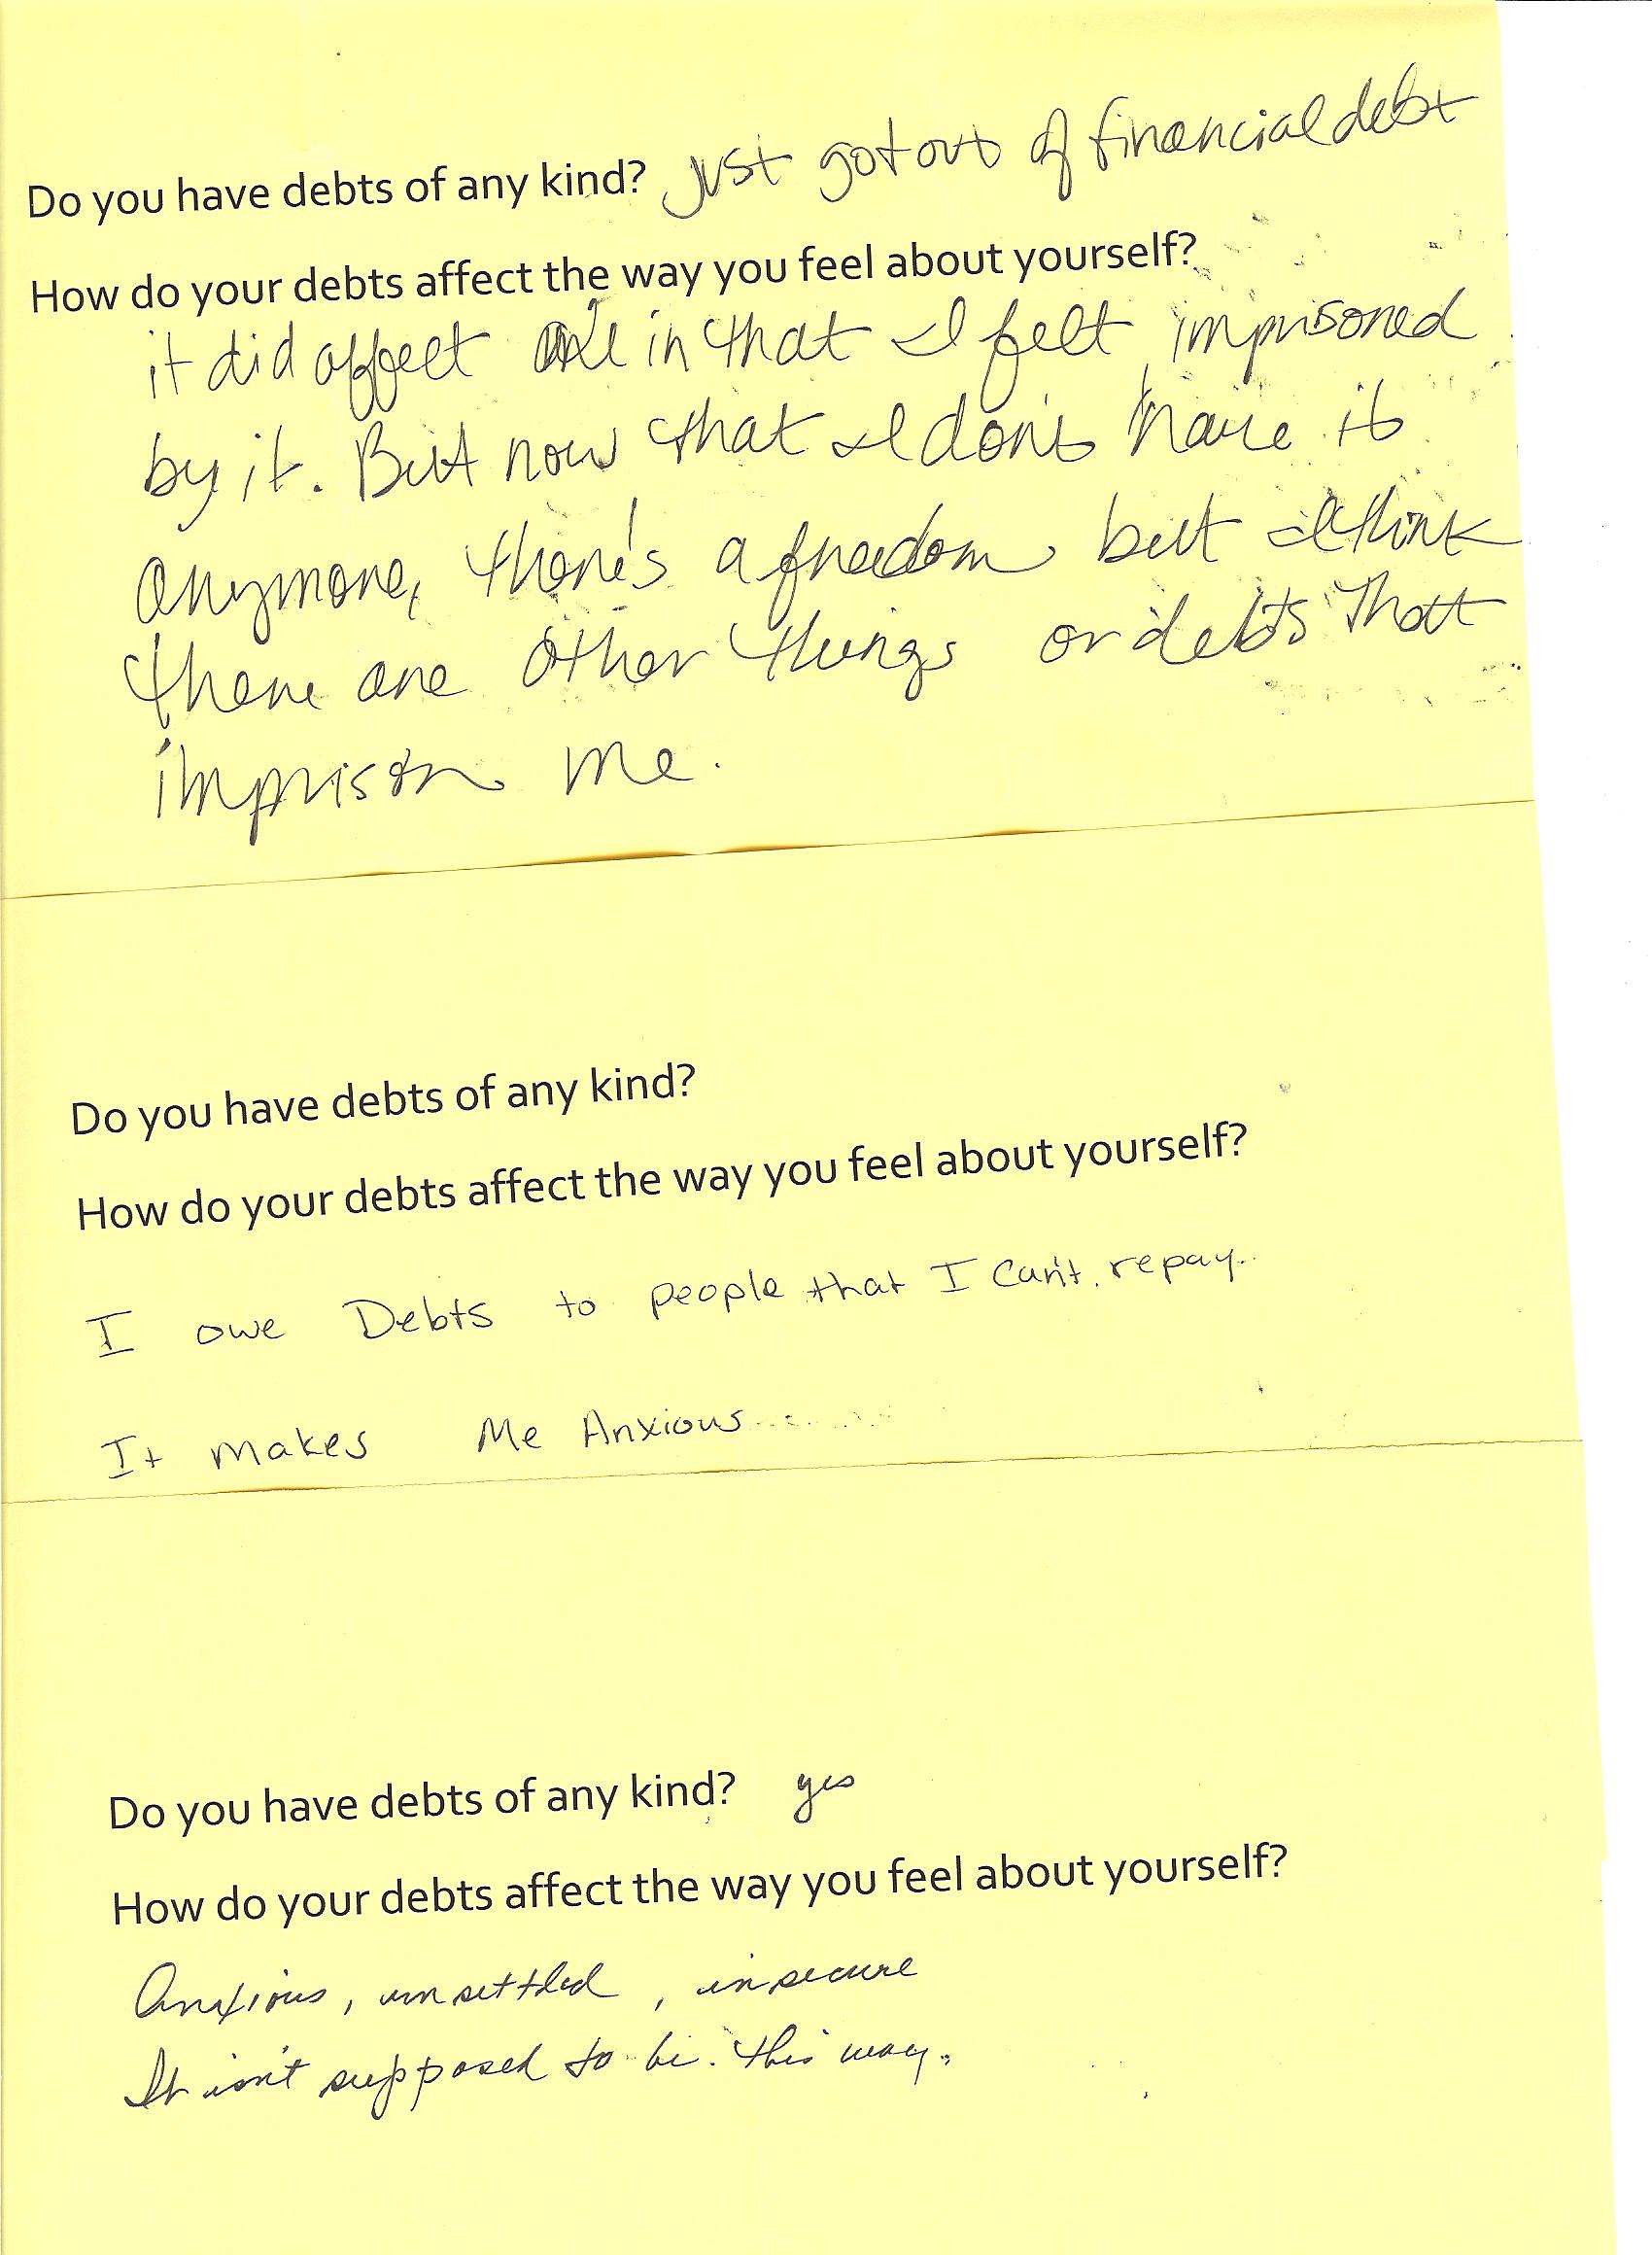 Do you have debts of any kind? just got out of financial debt
How do your debts affect the way you feel about yourself?
it did affect me in that I felt imprisoned
by it. But now that I don't have it
anymore, there's a freedom but I think
there are other things or debts that
imprison me.
Do you have debts of any kind?
How do your debts affect the way you feel about yourself?
I owe Debts to people that I Can't repay..
It makes Me Anxious......
Do you have debts of any kind? yes
How do your debts affect the way you feel about yourself?
Anxious, unsettled, insecure
It isn't supposed to be this way.